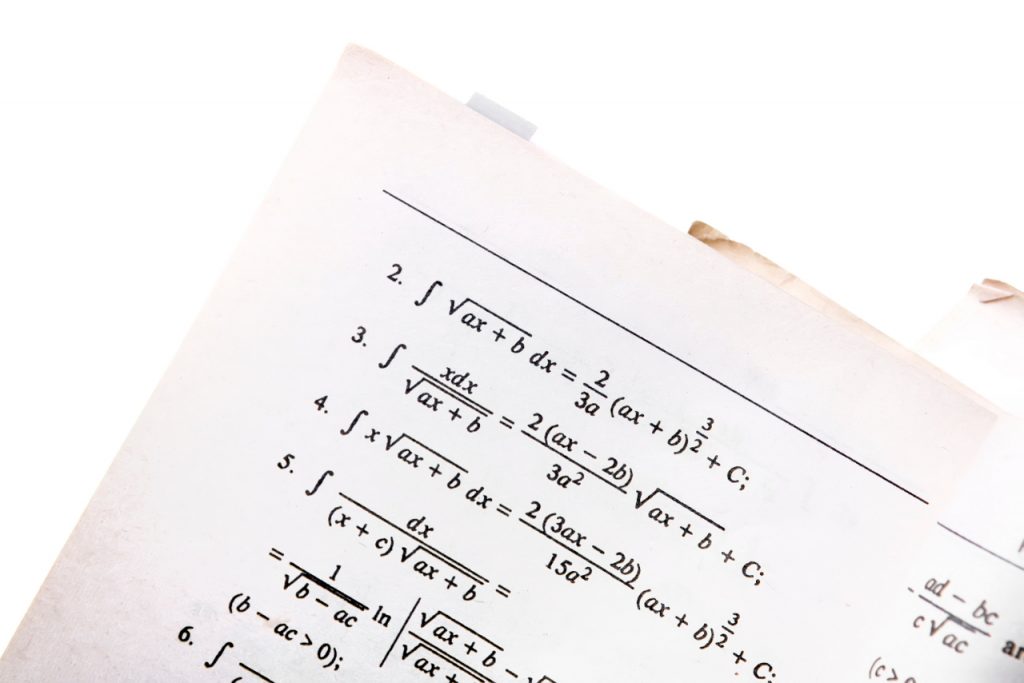 2. ∫ √(ax + b) dx = 2/3a (ax + b)^(3/2) + C;
3. ∫ xdx/√(ax + b) = 2 (ax − 2b)/3a² √(ax + b) + C;
4. ∫ x √(ax + b) dx = 2 (3ax − 2b)/15a² (ax + b)^(3/2) + C;
5. ∫ dx/((x + c) √(ax + b)) =
= 1/√(b − ac) ln | (√(ax + b) − √ / √(ax +
(b − ac > 0);
6. ∫
ad − bc / c √ac ar
(c >